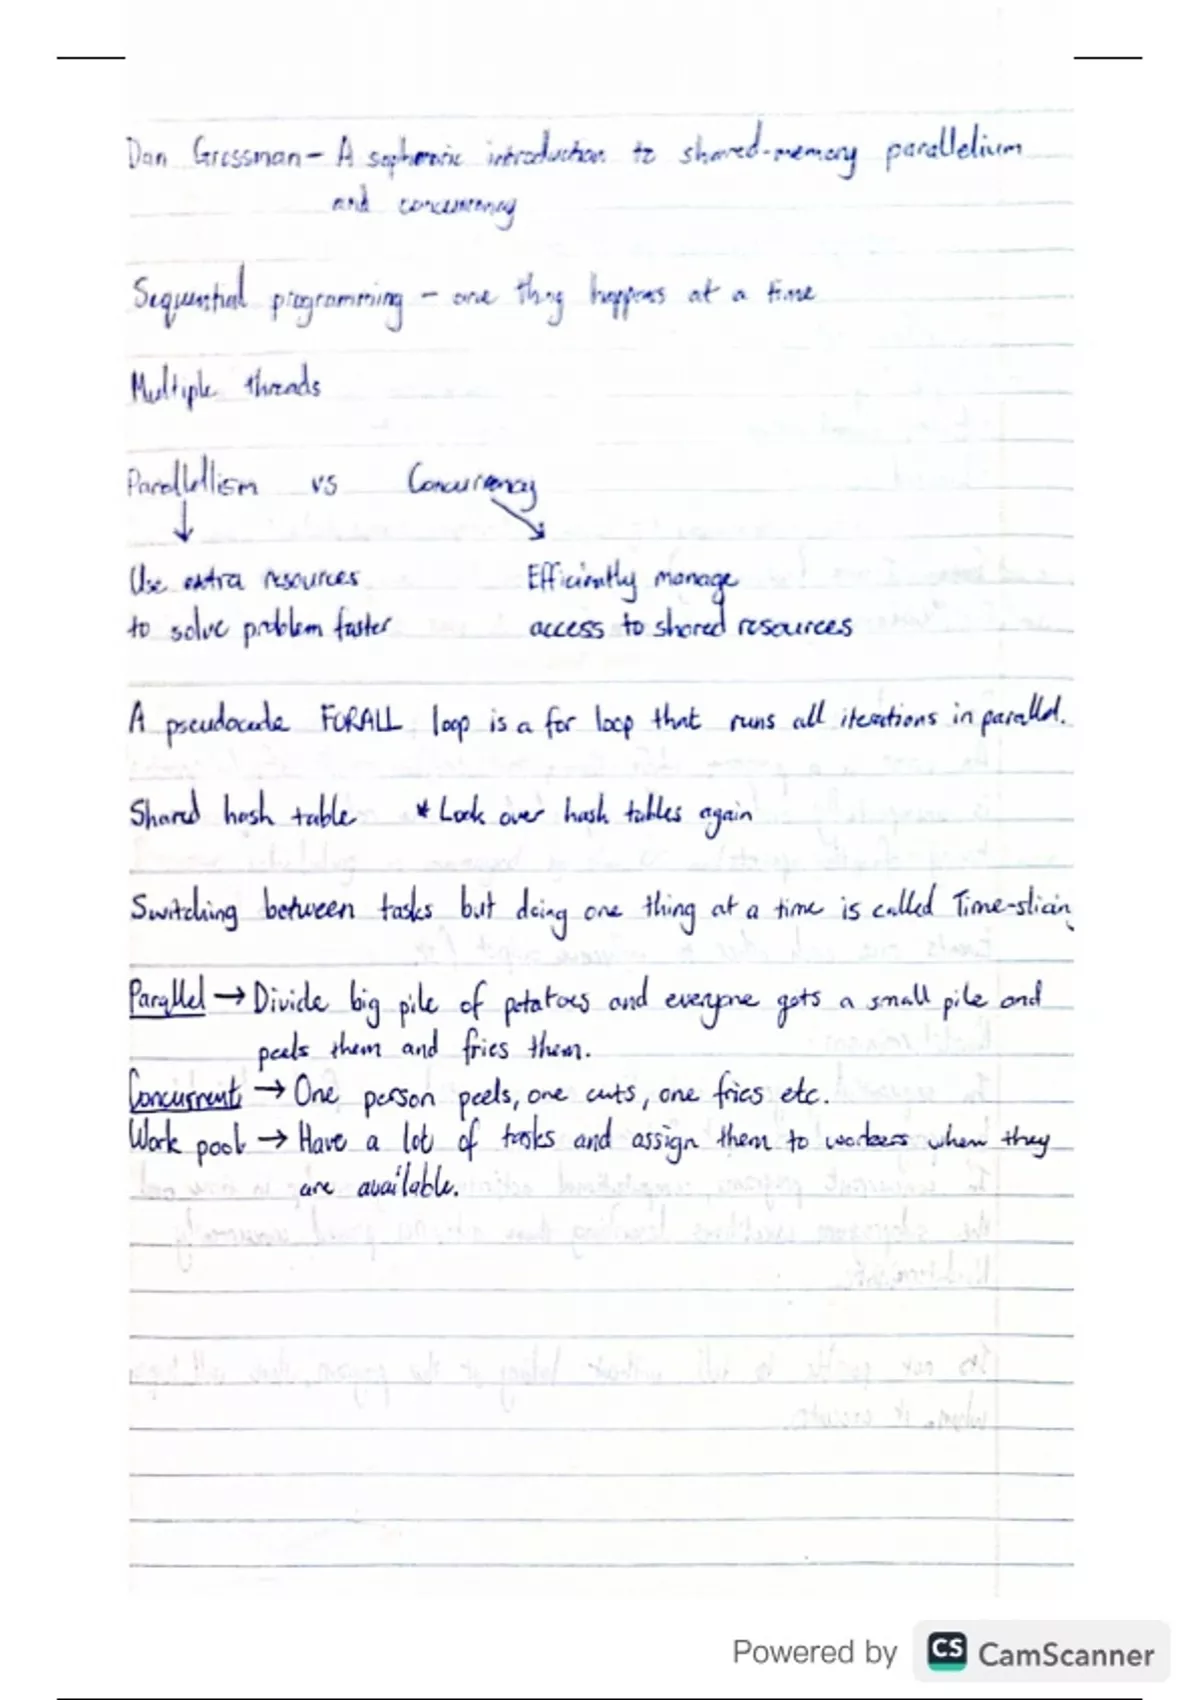 Dan Grossman - A sophomoric introduction to shared-memory parallelism
and concurrency
Sequential programming - one thing happens at a time
Multiple threads
Parallellism vs Concurrency
Use extra resources Efficiently manage
to solve problem faster access to shared resources
A pseudocode FORALL loop is a for loop that runs all iterations in parallel.
Shared hash table * Look over hash tables again
Switching between tasks but doing one thing at a time is called Time-slicin
Parallel → Divide big pile of potatoes and everyone gets a small pile and
peels them and fries them.
Concurrent → One person peels, one cuts, one fries etc.
Work pool → Have a lot of tasks and assign them to workers when they
are available.
Powered by CS CamScanner